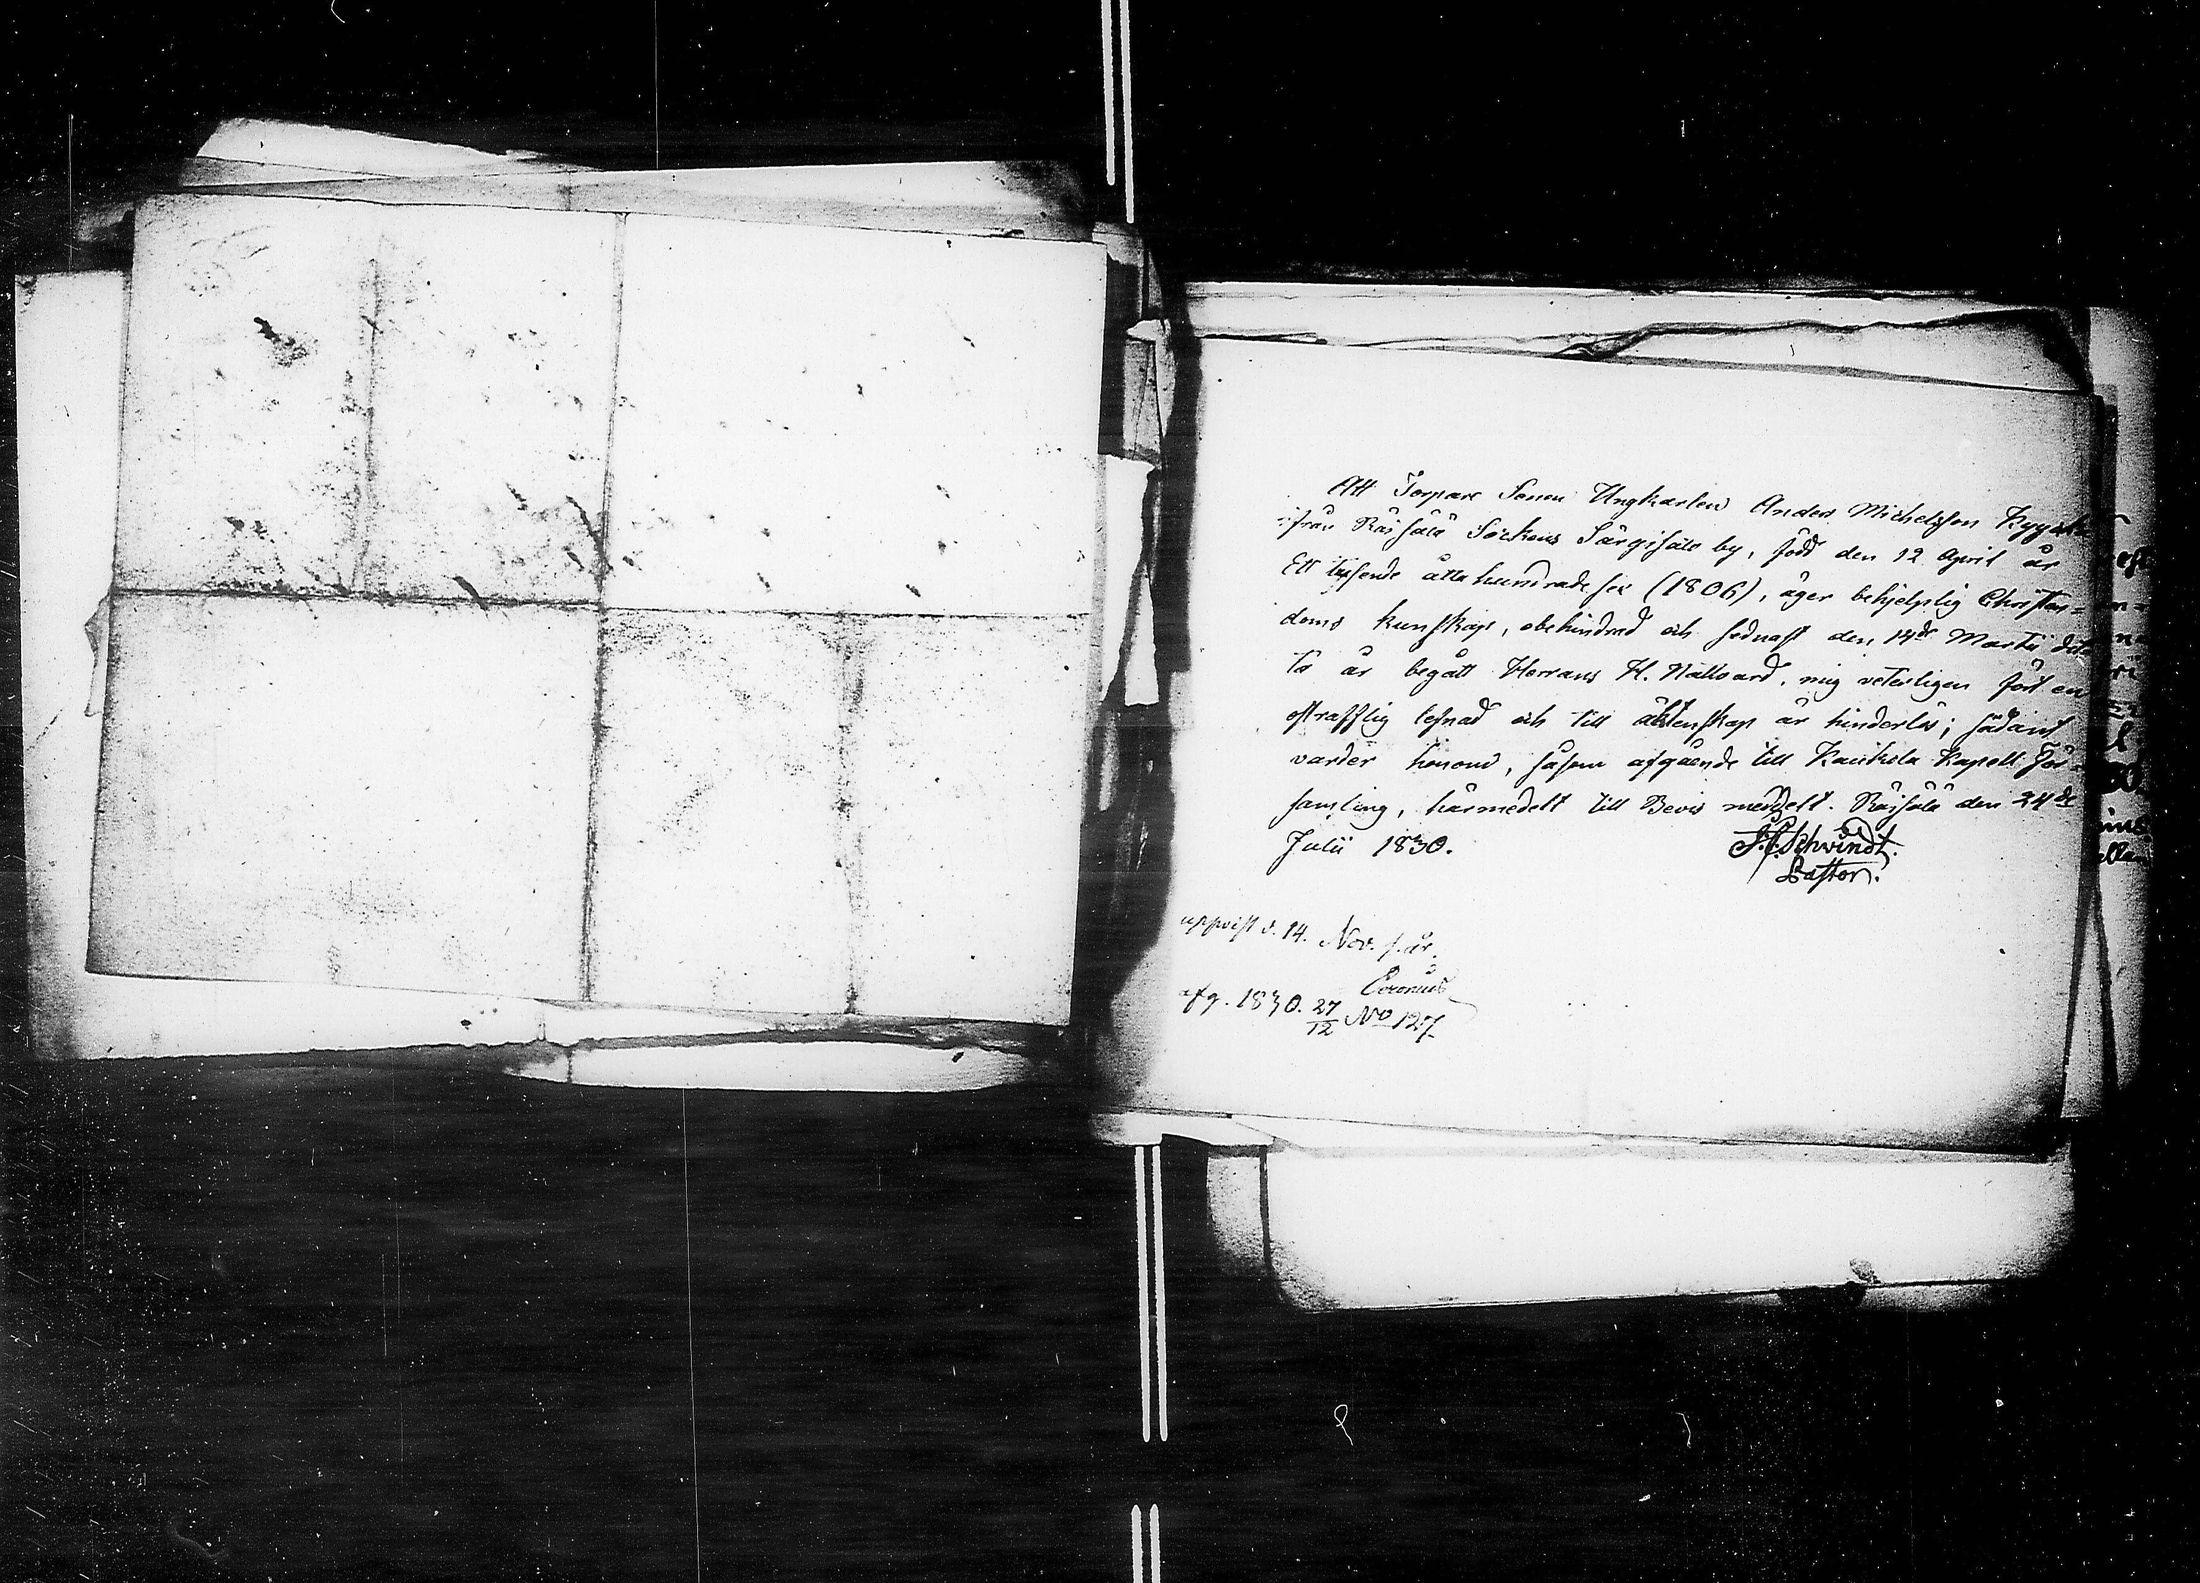 Att Torpare Sonen Ungkarlen Anders Michelsson
ifrån Räisälä Sockens Särgisalo by, född den 12 April år
Ett tusende åtta hundrade sex (1806), äger behjelplig Christen=
doms kunskap, obehindrad och sednast den 14de Martii det=
ta år begått Herrans H. Nattvard, mig veterligen fört en
ostrafflig lefnad och till äktenskap är hinderlös; sådant
varder honom, såsom afgående till Kaukola Kapell För=
samling, härmedelst till Bevis meddelt. Räisälä den 24de
Julii 1830.
Schvindt.
Pastor.
uppvist d. 14. Nov. s. år.
Coronius
afg. 1830. 27/12 No 127.